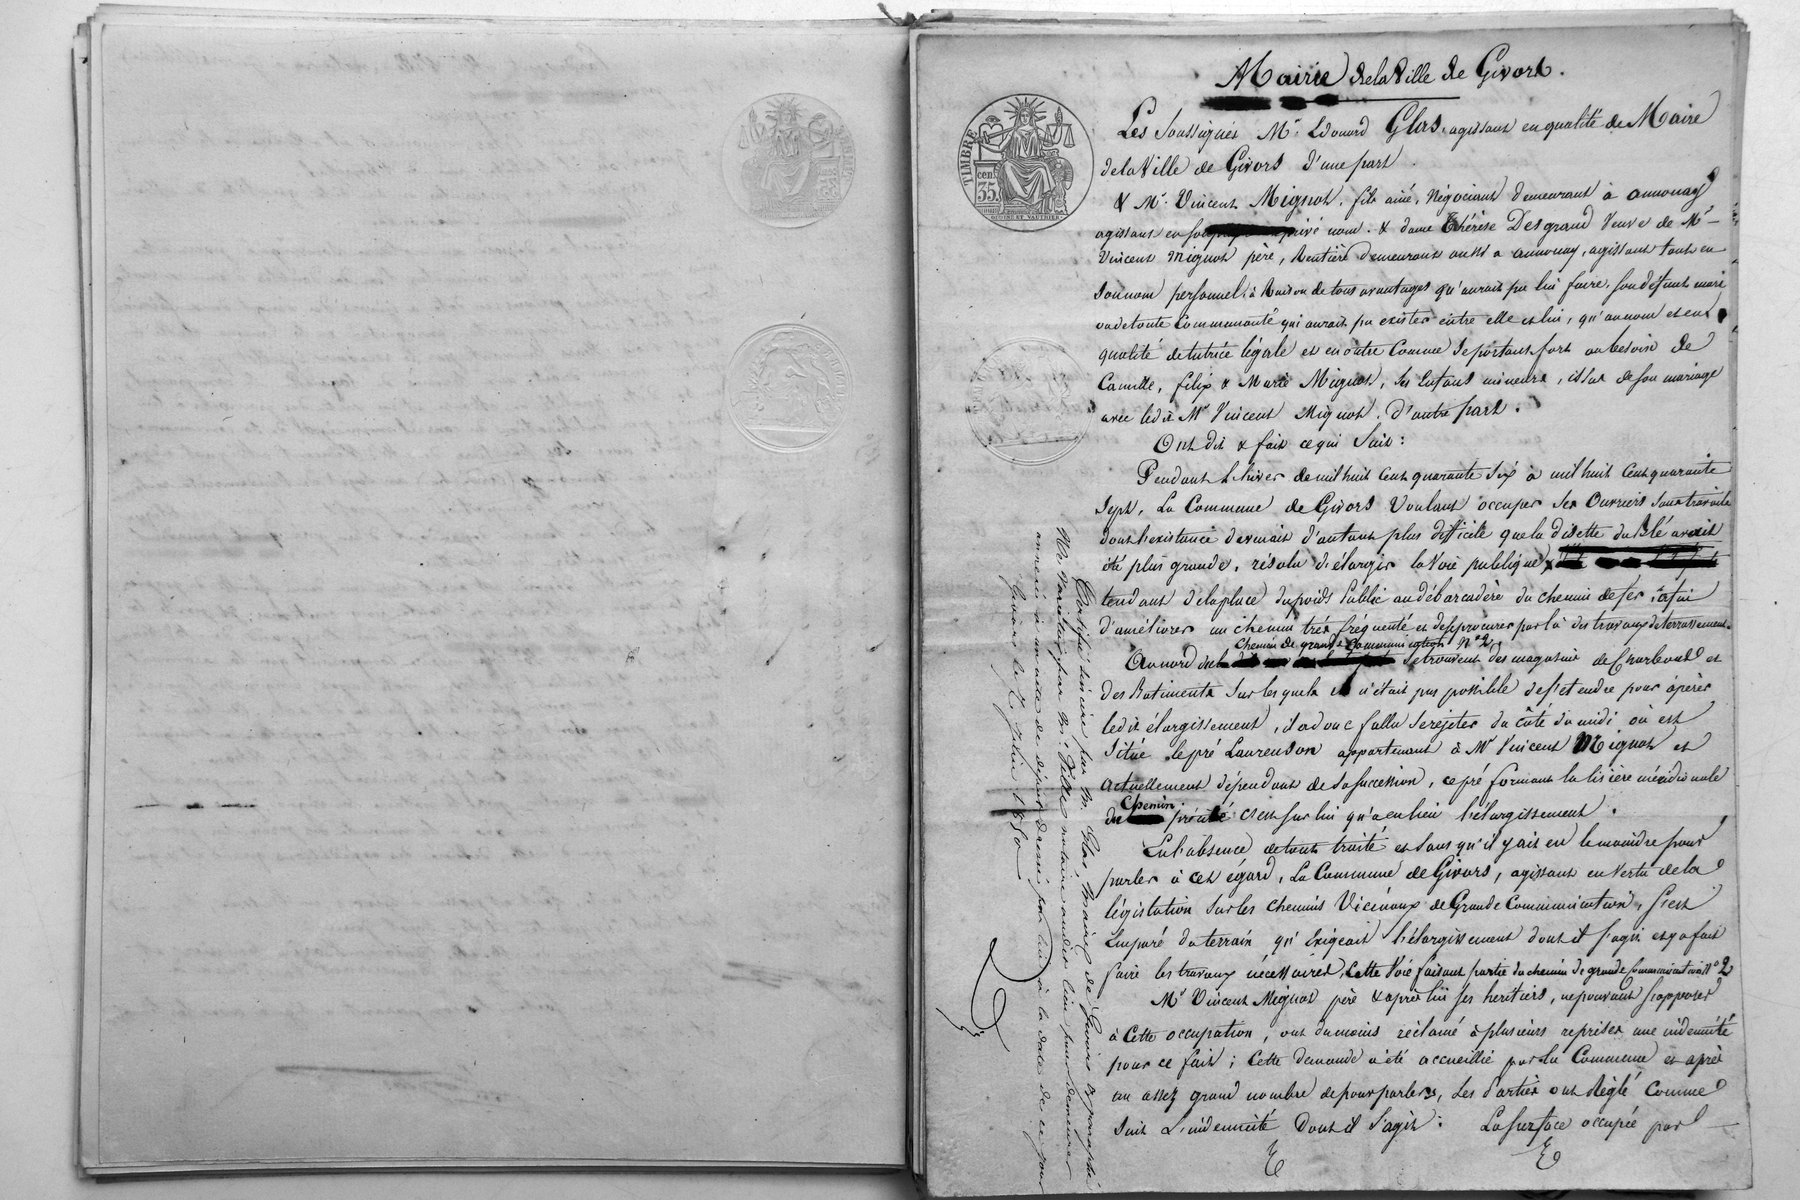 Mairie de la Ville de Givors.
TIMBRE
cen.
35.
Les Soussignés Mr. Edouard Glas, agissant en qualité de Maire
de la Ville de Givors d'une part
& Mr. Vincent Mignot, fils ainé, Négociant demeurant à annonay
agissant en son privé nom. & dame Thérèse Desgrand Veuve de Mr
Vincent Mignot père, Rentière demeurant aussi a annonay, agissant tant en
son nom personnel, à Raison de tous avantages qu'aurait pu lui faire son défunt mari
ou de toute Communauté qui aurait pu exister entre elle et lui, qu'au nom et en
qualité de tutrice légale et en outre Comme Se portant fort au besoin de
Camille, félix & Marie Mignot, Ses Enfans mineurs, issus de son mariage
avec ledit Mr Vincent Mignot, d'autre part.
Ont dit & fait ce qui Suit:
Pendant l'hiver de mil huit Cent quarante Six à mil huit Cent quarante
Sept, La Commune de Givors Voulant occuper Ses Ouvriers Sans travail
dont l'existence devenait d'autant plus difficile que la disette du Blé avait
été plus grande, résolu d'élargir la Voie publique
tendant de la place du poids Public au débarcadère du chemin de fer, afin
d'améliorer un chemin très fréquenté et de se procurer par là des travaux de terrassement.
Chemin de grande Communication No 2
Au nord du Se trouvent des magasins de Charbon et
des Batiments Sur lesquels il n'était pas possible de s'étendre pour opérer
ledit élargissement, il a donc fallu Se rejeter du côté du midi où est
Situé le pré Laurendon appartenant à Mr Vincent Mignot et
actuellement dépendant de Sa Succession, ce pré formant la lisière méridionale
Chemin
du précité c'est sur lui qu'a eu lieu l'élargissement.
En l'absence de tout traité et Sans qu'il y ait eu le moindre pour
parler à cet égard, La Commune de Givors, agissant en Vertu de la
législation Sur les chemins Vicinaux de Grande Communication, s'est
Emparé du terrain qu'Exigeait l'élargissement dont il s'agit et y a fait
faire les travaux nécessaires, Cette Voie faisant partie du chemin de grande Communication No 2
Mr Vincent Mignot père & après lui Ses heritiers, ne pouvant s'opposer
à Cette occupation, ont du moins réclamé à plusieurs reprises une indemnité
pour ce fait; Cette demande a été accueillie par la Commune et après
un assez grand nombre de pourparlers, Les Parties ont Réglé Comme
Suit L'indemnité Dont il S'agit: La surface occupée par
Certifié sincère par Mr. Glas, Maire de Givors & paraphé
Ne Varietur par Mr. notaire audit lieu pour demeurer
annexé à un acte de dépôt dressé par lui à la date de ce jour
Givors le Juin 1850